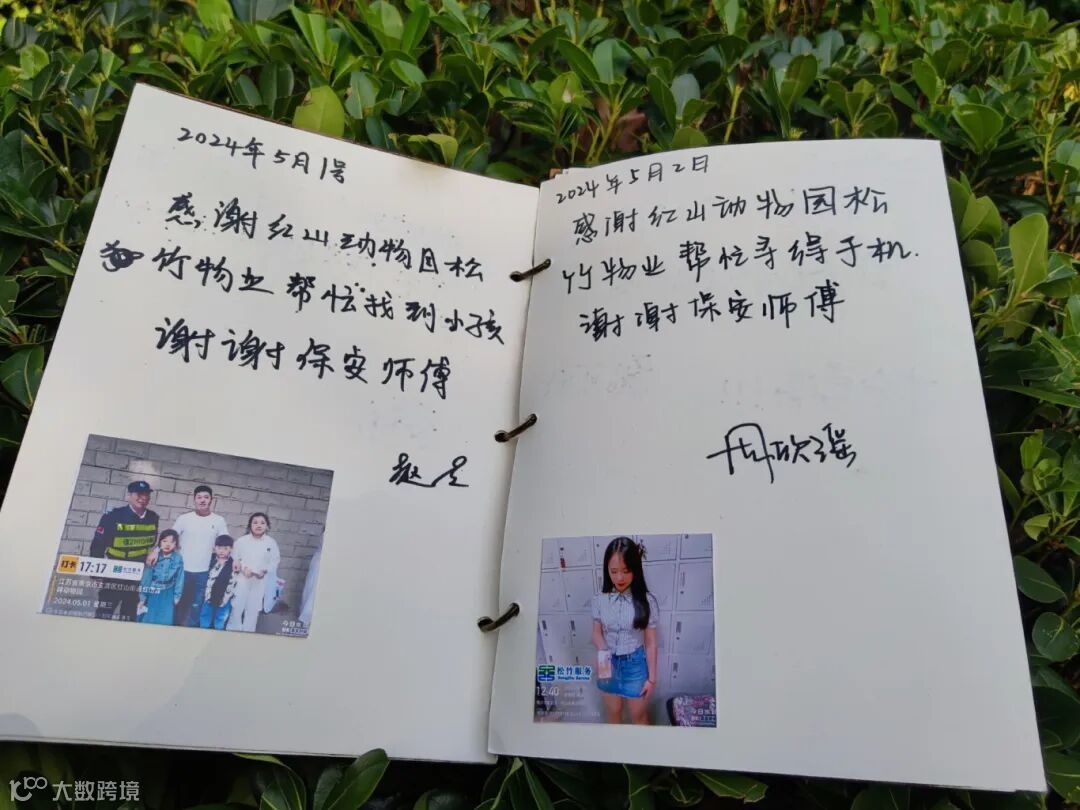 2024年5月1号
感谢红山动物园松
竹物业帮忙找到小孩
谢谢保安师傅
打卡 17:17
2024.05.01 星期三
2024年5月2日
感谢红山动物园松
竹物业帮忙寻得手机.
谢谢保安师傅
周欣瑶
松竹服务
12:40
大数跨境